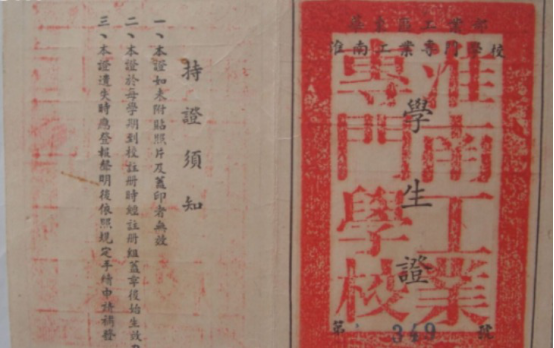 華東區工業部
淮南工業專門學校
淮南工業
專門學校
學生證
第 349 號
持證須知
一、本證如未附貼照片及蓋印者無效
二、本證於每學期到校註冊時經註冊組蓋章後始生效
三、本證遺失時應登報聲明後依照規定手續申請補發